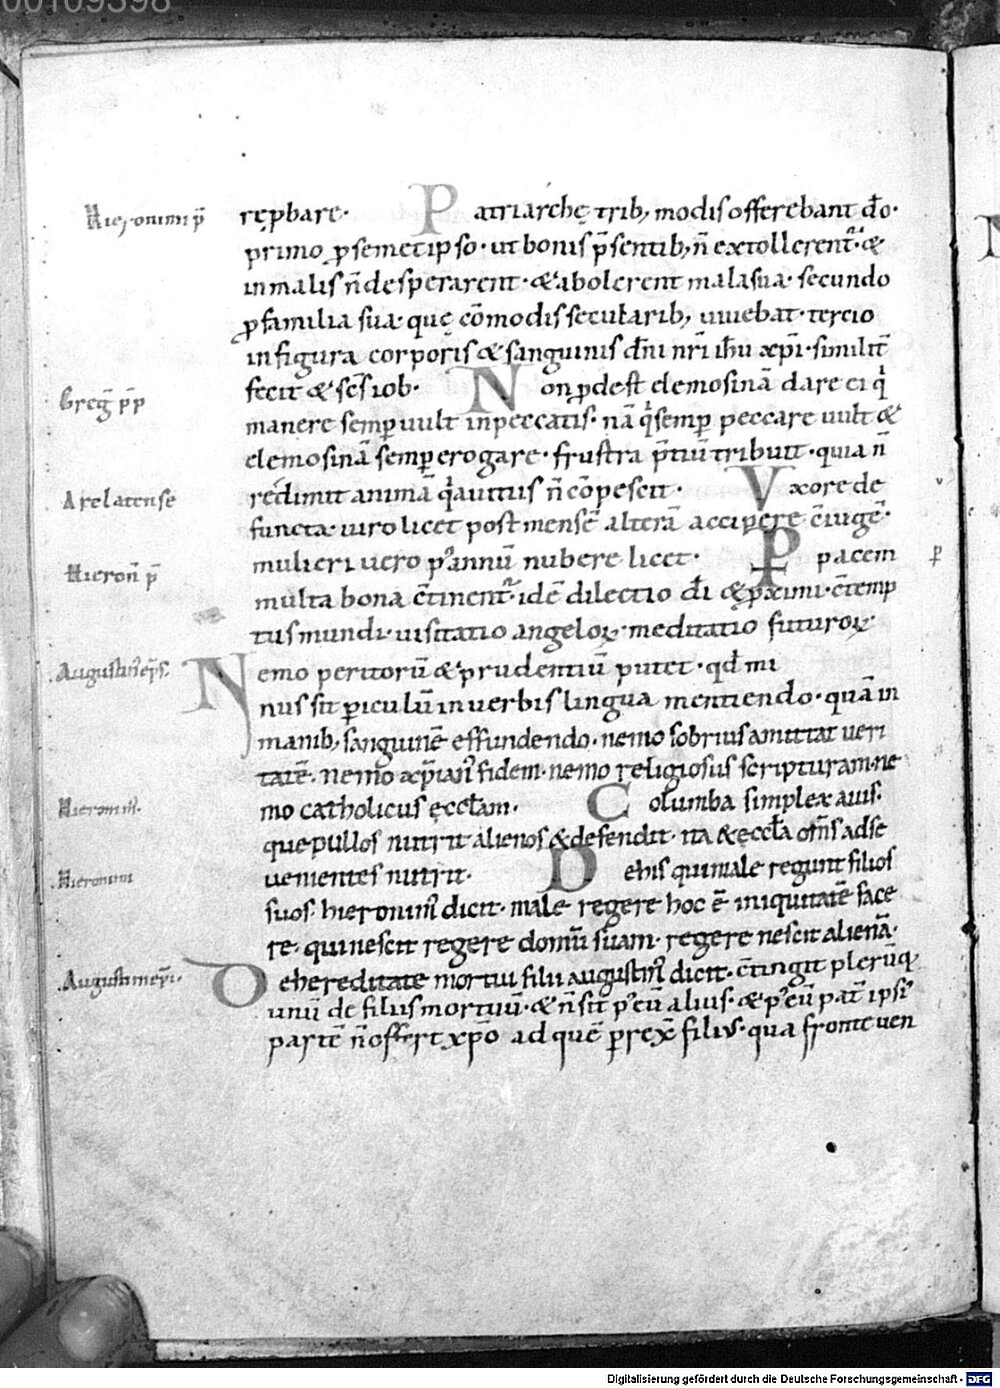 00109398
Hieronimi p̄ rep̱bare· Patriarchę trib; modis offerebant dō·
primo p̱ semetipso· ut bonis p̄sentib; n̄ extollerent᷑· &
in malis n̄ desperarent· & abolerent mala sua· secundo
p̱ familia sua· quę cōmodis secularib; uiuebat· tercio
in figura corporis & sanguinis dn̄i nr̄i ih̄u xp̄i· similit̄
Greḡ p̄p fecit & sc̄s iob· Non p̱dest elemosinā dare ei q̇
manere semp̱ uult in peccatis· nā q̇ semp̱ peccare uult &
elemosinā semp̱ erogare· frustra p̄tiū tribuit· quia n̄
Arelatense redimit animā q̇ a uitiis n̄ cōpescit· Vxore de
functa· uiro licet post mensē alterā accipere c̄iugē·
Hieron̄ p̄ mulieri uero p᾽ annū nubere licet· P pacem p
multa bona c̄tinent᷑· idē dilectio dī & p̱ximi· c̄temp
tus mundi· uisitatio angeloꝝ· meditatio futuroꝝ·
Augustin᾽ ep̄s· Nemo peritorū & prudentiū putet· qd̄ mi
nus sit p̱iculū in uerbis lingua mentiendo· quā in
manib; sanguinē effundendo· nemo sobrius amittat ueri
tatē· nemo xp̄ian᾽ fidem· nemo religiosus scripturam· ne
Hieronim̄· mo catholicus ęccl̄am· Columba simplex auis·
que pullos nutrit alienos & defendit· ita & ęccl̄a om̄s ad se
Hieronimi uenientes nutrit· De his qui male regunt filios
suos· hieronim᾽ dicit· male regere hoc ē iniquitatē face
re· qui nescit regere domū suam· regere nescit alienā·
Augustini ep̄i· De hereditate mortui filii augustin᾽ dicit· c̄tingit plerūq;
unū de filiis mortuū· & n̄ sit p᾽ eū alius· & p᾽ eū pat̄ ipsi᾽
partē n̄ offert xp̄o ad quē p̱rex̄ filius· qua fronte uen
Digitalisierung gefördert durch die Deutsche Forschungsgemeinschaft · DFG